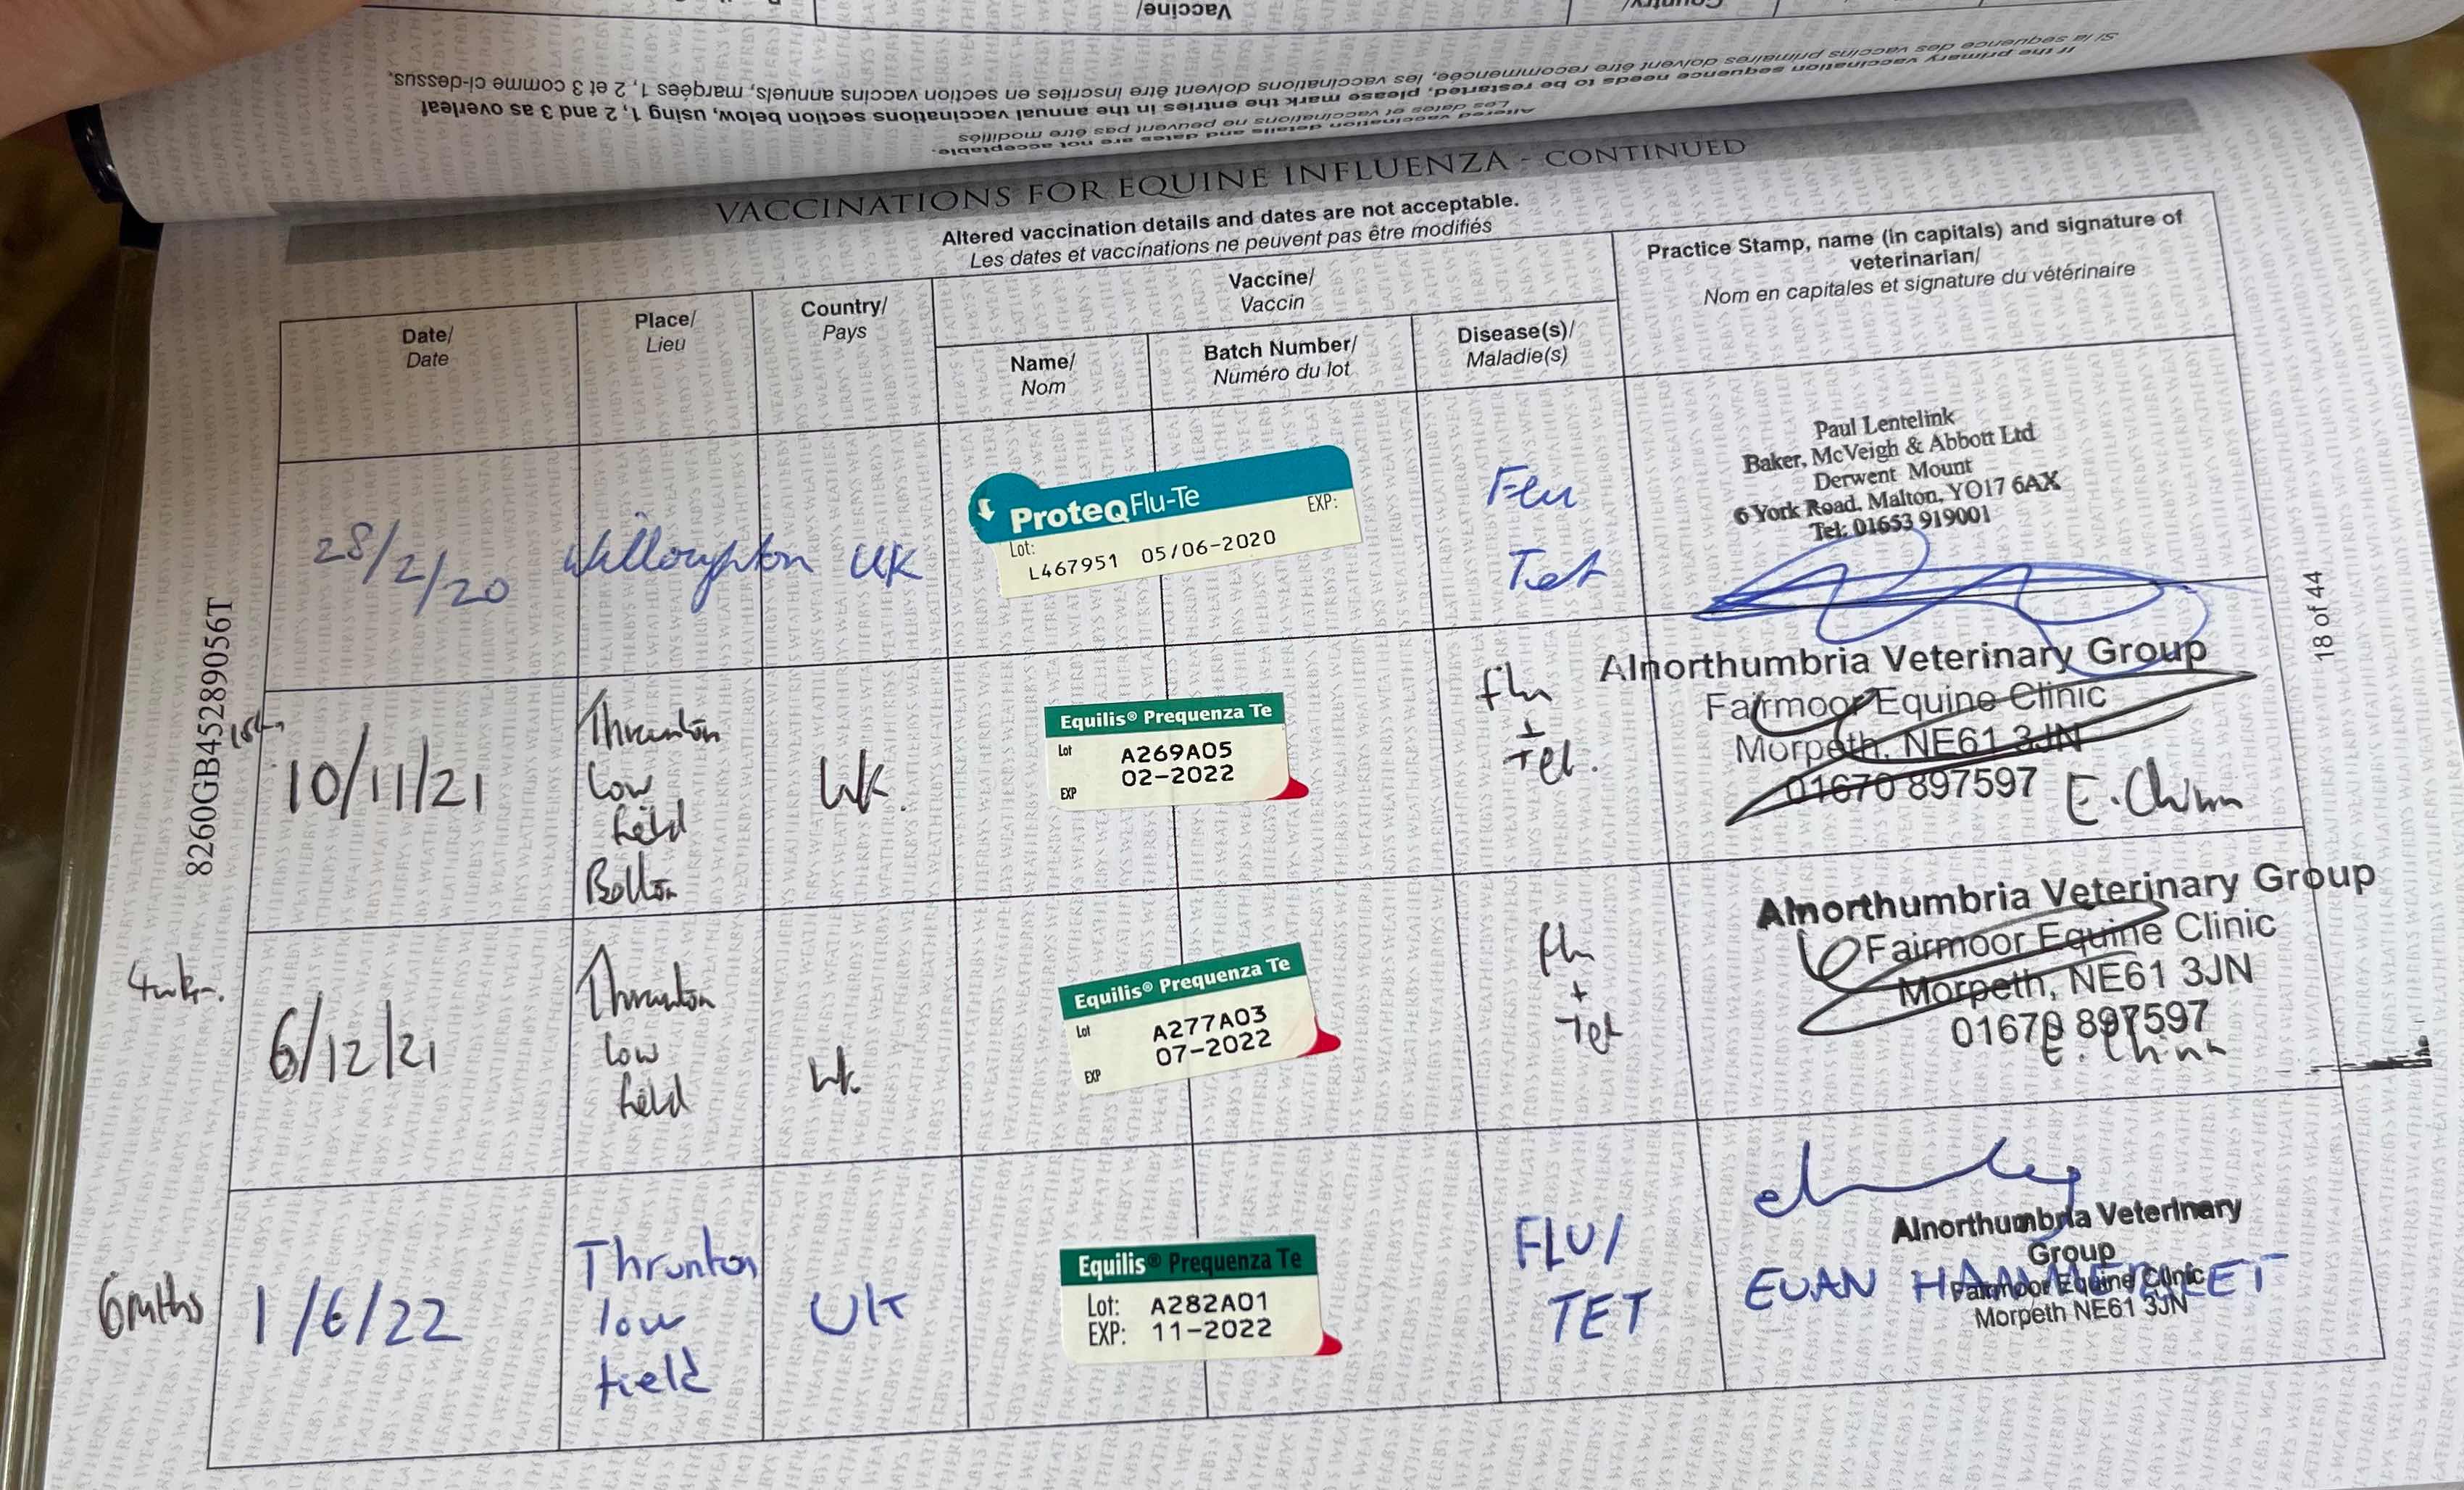 Vaccine/
Country/
Si la séquence des vaccins primaires doivent être recommencée, les vaccinations doivent être inscrites en section vaccins annuels, marqées 1, 2 et 3 comme ci-dessus.
If the primary vaccination sequence needs to be restarted, please mark the entries in the annual vaccinations section below, using 1, 2 and 3 as overleaf
Les dates et vaccinations ne peuvent pas être modifiés
Altered vaccination details and dates are not acceptable.
VACCINATIONS FOR EQUINE INFLUENZA - CONTINUED
Altered vaccination details and dates are not acceptable.
Les dates et vaccinations ne peuvent pas être modifiés
Date/
Date
Place/
Lieu
Country/
Pays
Vaccine/
Vaccin
Name/
Nom
Batch Number/
Numéro du lot
Disease(s)/
Maladie(s)
Practice Stamp, name (in capitals) and signature of
veterinarian/
Nom en capitales et signature du vétérinaire
28/2/20
UK
ProteqFlu-Te
Lot:
EXP:
L467951 05/06-2020
Flu
Tet
Paul Lentelink
Baker, McVeigh & Abbott Ltd
Derwent Mount
6 York Road, Malton, YO17 6AX
Tel: 01653 919001
1st
10/11/21
Thrunton
low
field
Bolton
UK.
Equilis® Prequenza Te
Lot A269A05
02-2022
EXP
flu
+
Tet.
Alnorthumbria Veterinary Group
Fairmoor Equine Clinic
Morpeth, NE61 3JN
01670 897597
4wks.
6/12/21
Thrunton
low
field
UK.
Equilis® Prequenza Te
Lot A277A03
07-2022
EXP
flu
+
Tet
Alnorthumbria Veterinary Group
Fairmoor Equine Clinic
Morpeth, NE61 3JN
01670 897597
6mths
1/6/22
Thrunton
low
field
UK
Equilis® Prequenza Te
Lot: A282A01
EXP: 11-2022
FLU/
TET
Alnorthumbria Veterinary
Group
Fairmoor Equine Clinic
Morpeth NE61 3JN
EUAN
8260GB45289056T
18 of 44